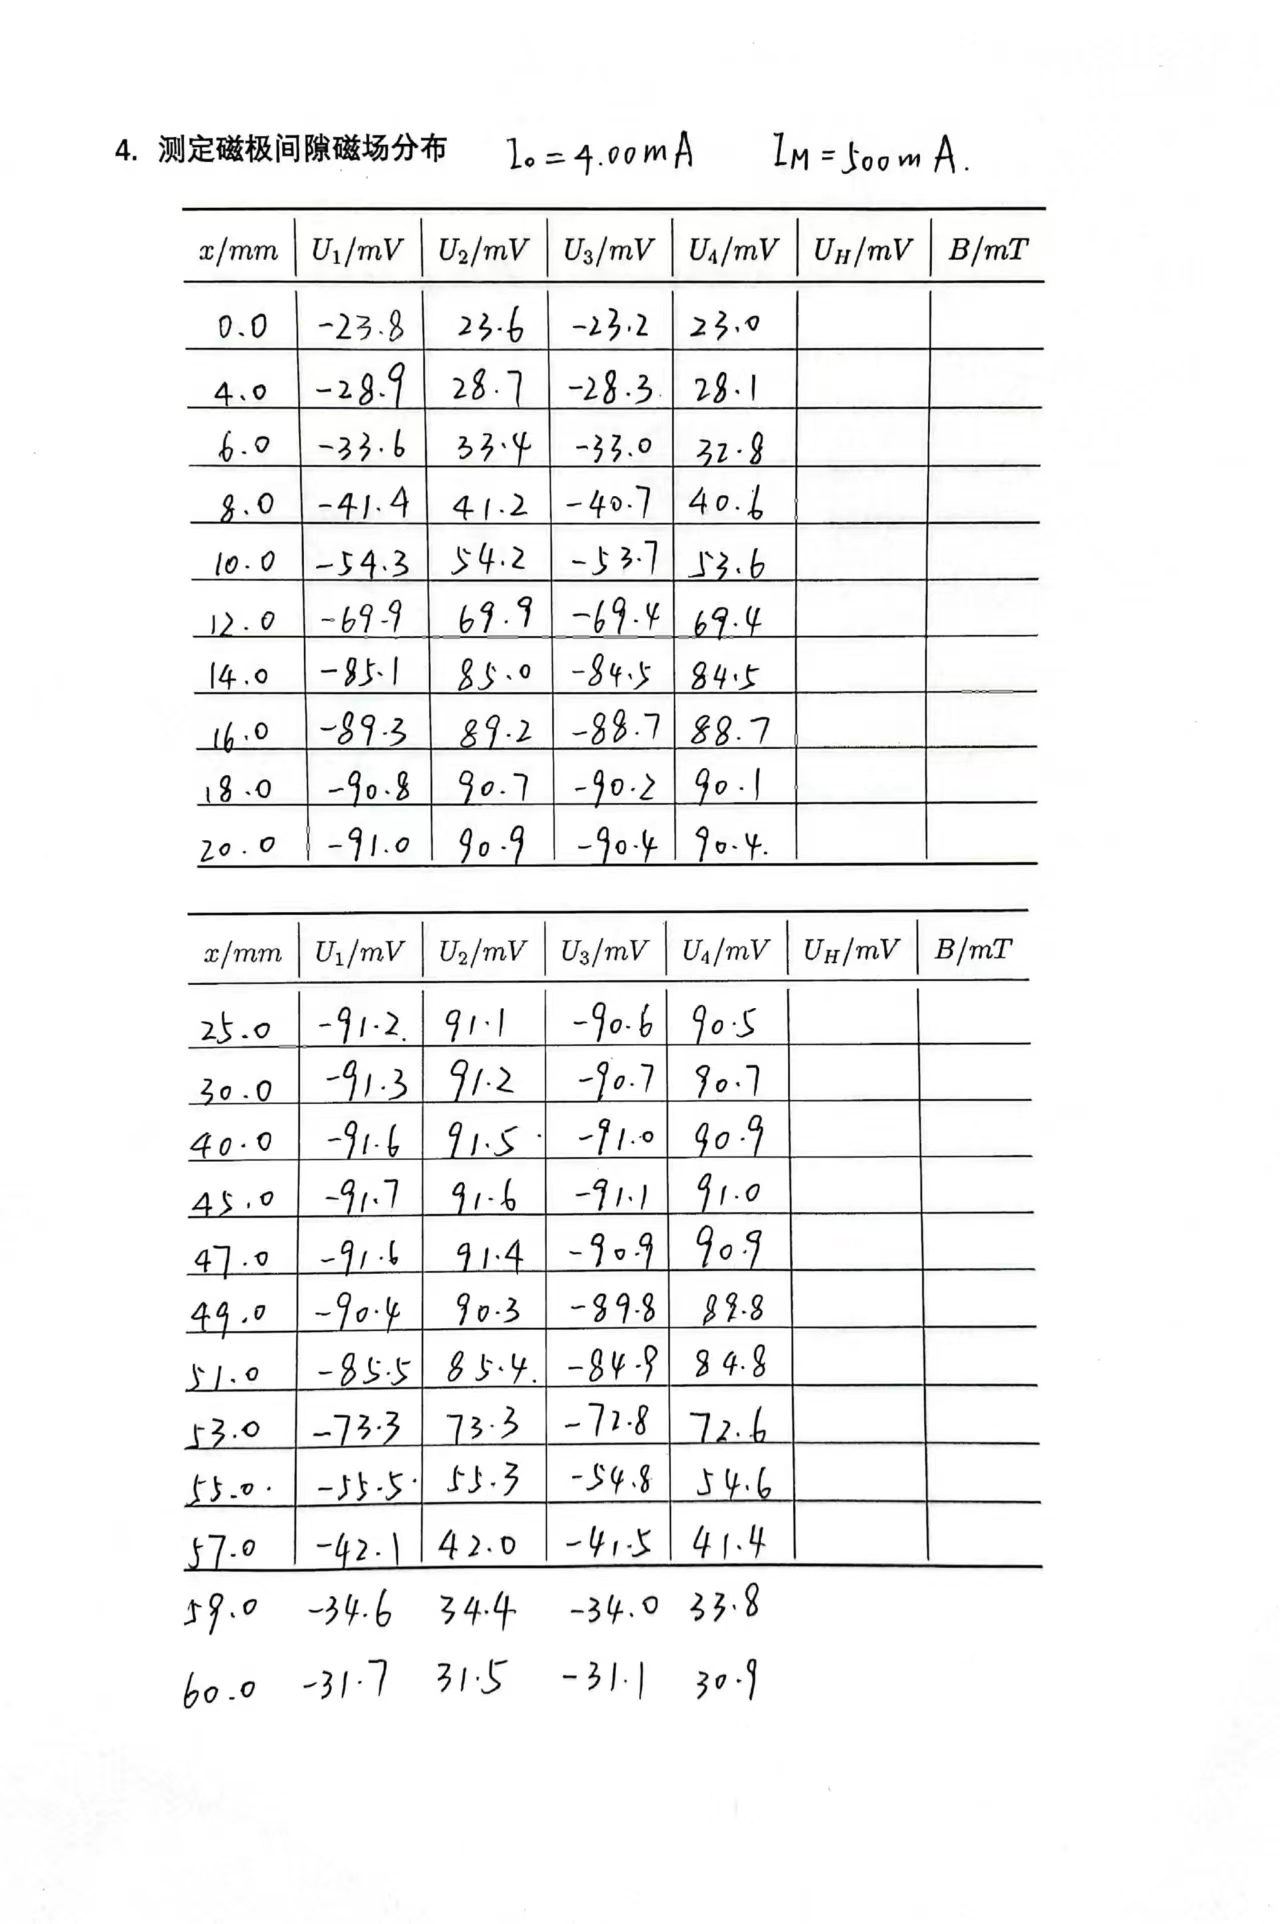 4. 测定磁极间隙磁场分布 I₀ = 4.00mA I_M = 500mA.
x/mm U₁/mV U₂/mV U₃/mV U₄/mV U_H/mV B/mT
0.0 -23.8 23.6 -23.2 23.0
4.0 -28.9 28.7 -28.3 28.1
6.0 -33.6 33.4 -33.0 32.8
8.0 -41.4 41.2 -40.7 40.6
10.0 -54.3 54.2 -53.7 53.6
12.0 -69.9 69.9 -69.4 69.4
14.0 -85.1 85.0 -84.5 84.5
16.0 -89.3 89.2 -88.7 88.7
18.0 -90.8 90.7 -90.2 90.1
20.0 -91.0 90.9 -90.4 90.4.
x/mm U₁/mV U₂/mV U₃/mV U₄/mV U_H/mV B/mT
25.0 -91.2 91.1 -90.6 90.5
30.0 -91.3 91.2 -90.7 90.7
40.0 -91.6 91.5 -91.0 90.9
45.0 -91.7 91.6 -91.1 91.0
47.0 -91.6 91.4 -90.9 90.9
49.0 -90.4 90.3 -89.8 89.8
51.0 -85.5 85.4. -84.9 84.8
53.0 -73.3 73.3 -72.8 72.6
55.0. -55.5 55.3 -54.8 54.6
57.0 -42.1 42.0 -41.5 41.4
59.0 -34.6 34.4 -34.0 33.8
60.0 -31.7 31.5 -31.1 30.9